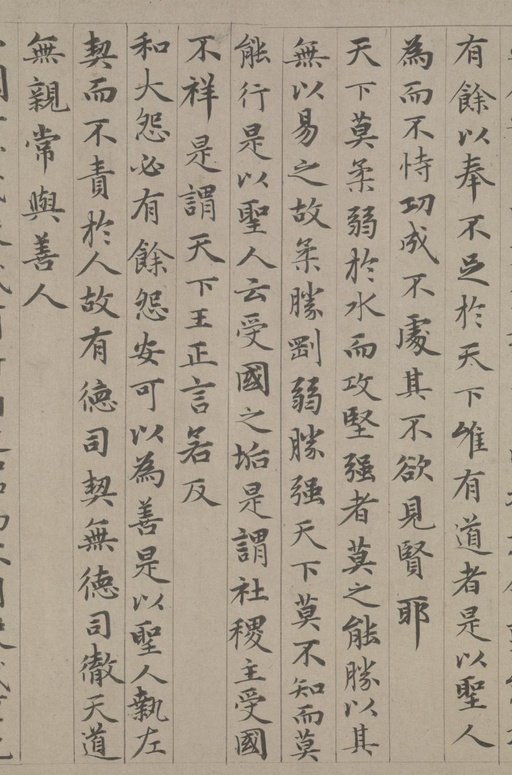 有餘以奉不足於天下唯有道者是以聖人
為而不恃功成不處其不欲見賢耶
天下莫柔弱於水而攻堅强者莫之能勝以其
無以易之故柔勝剛弱勝强天下莫不知而莫
能行是以聖人云受國之垢是謂社稷主受國
不祥是謂天下王正言若反
和大怨必有餘怨安可以為善是以聖人執左
契而不責於人故有德司契無德司徹天道
無親常與善人